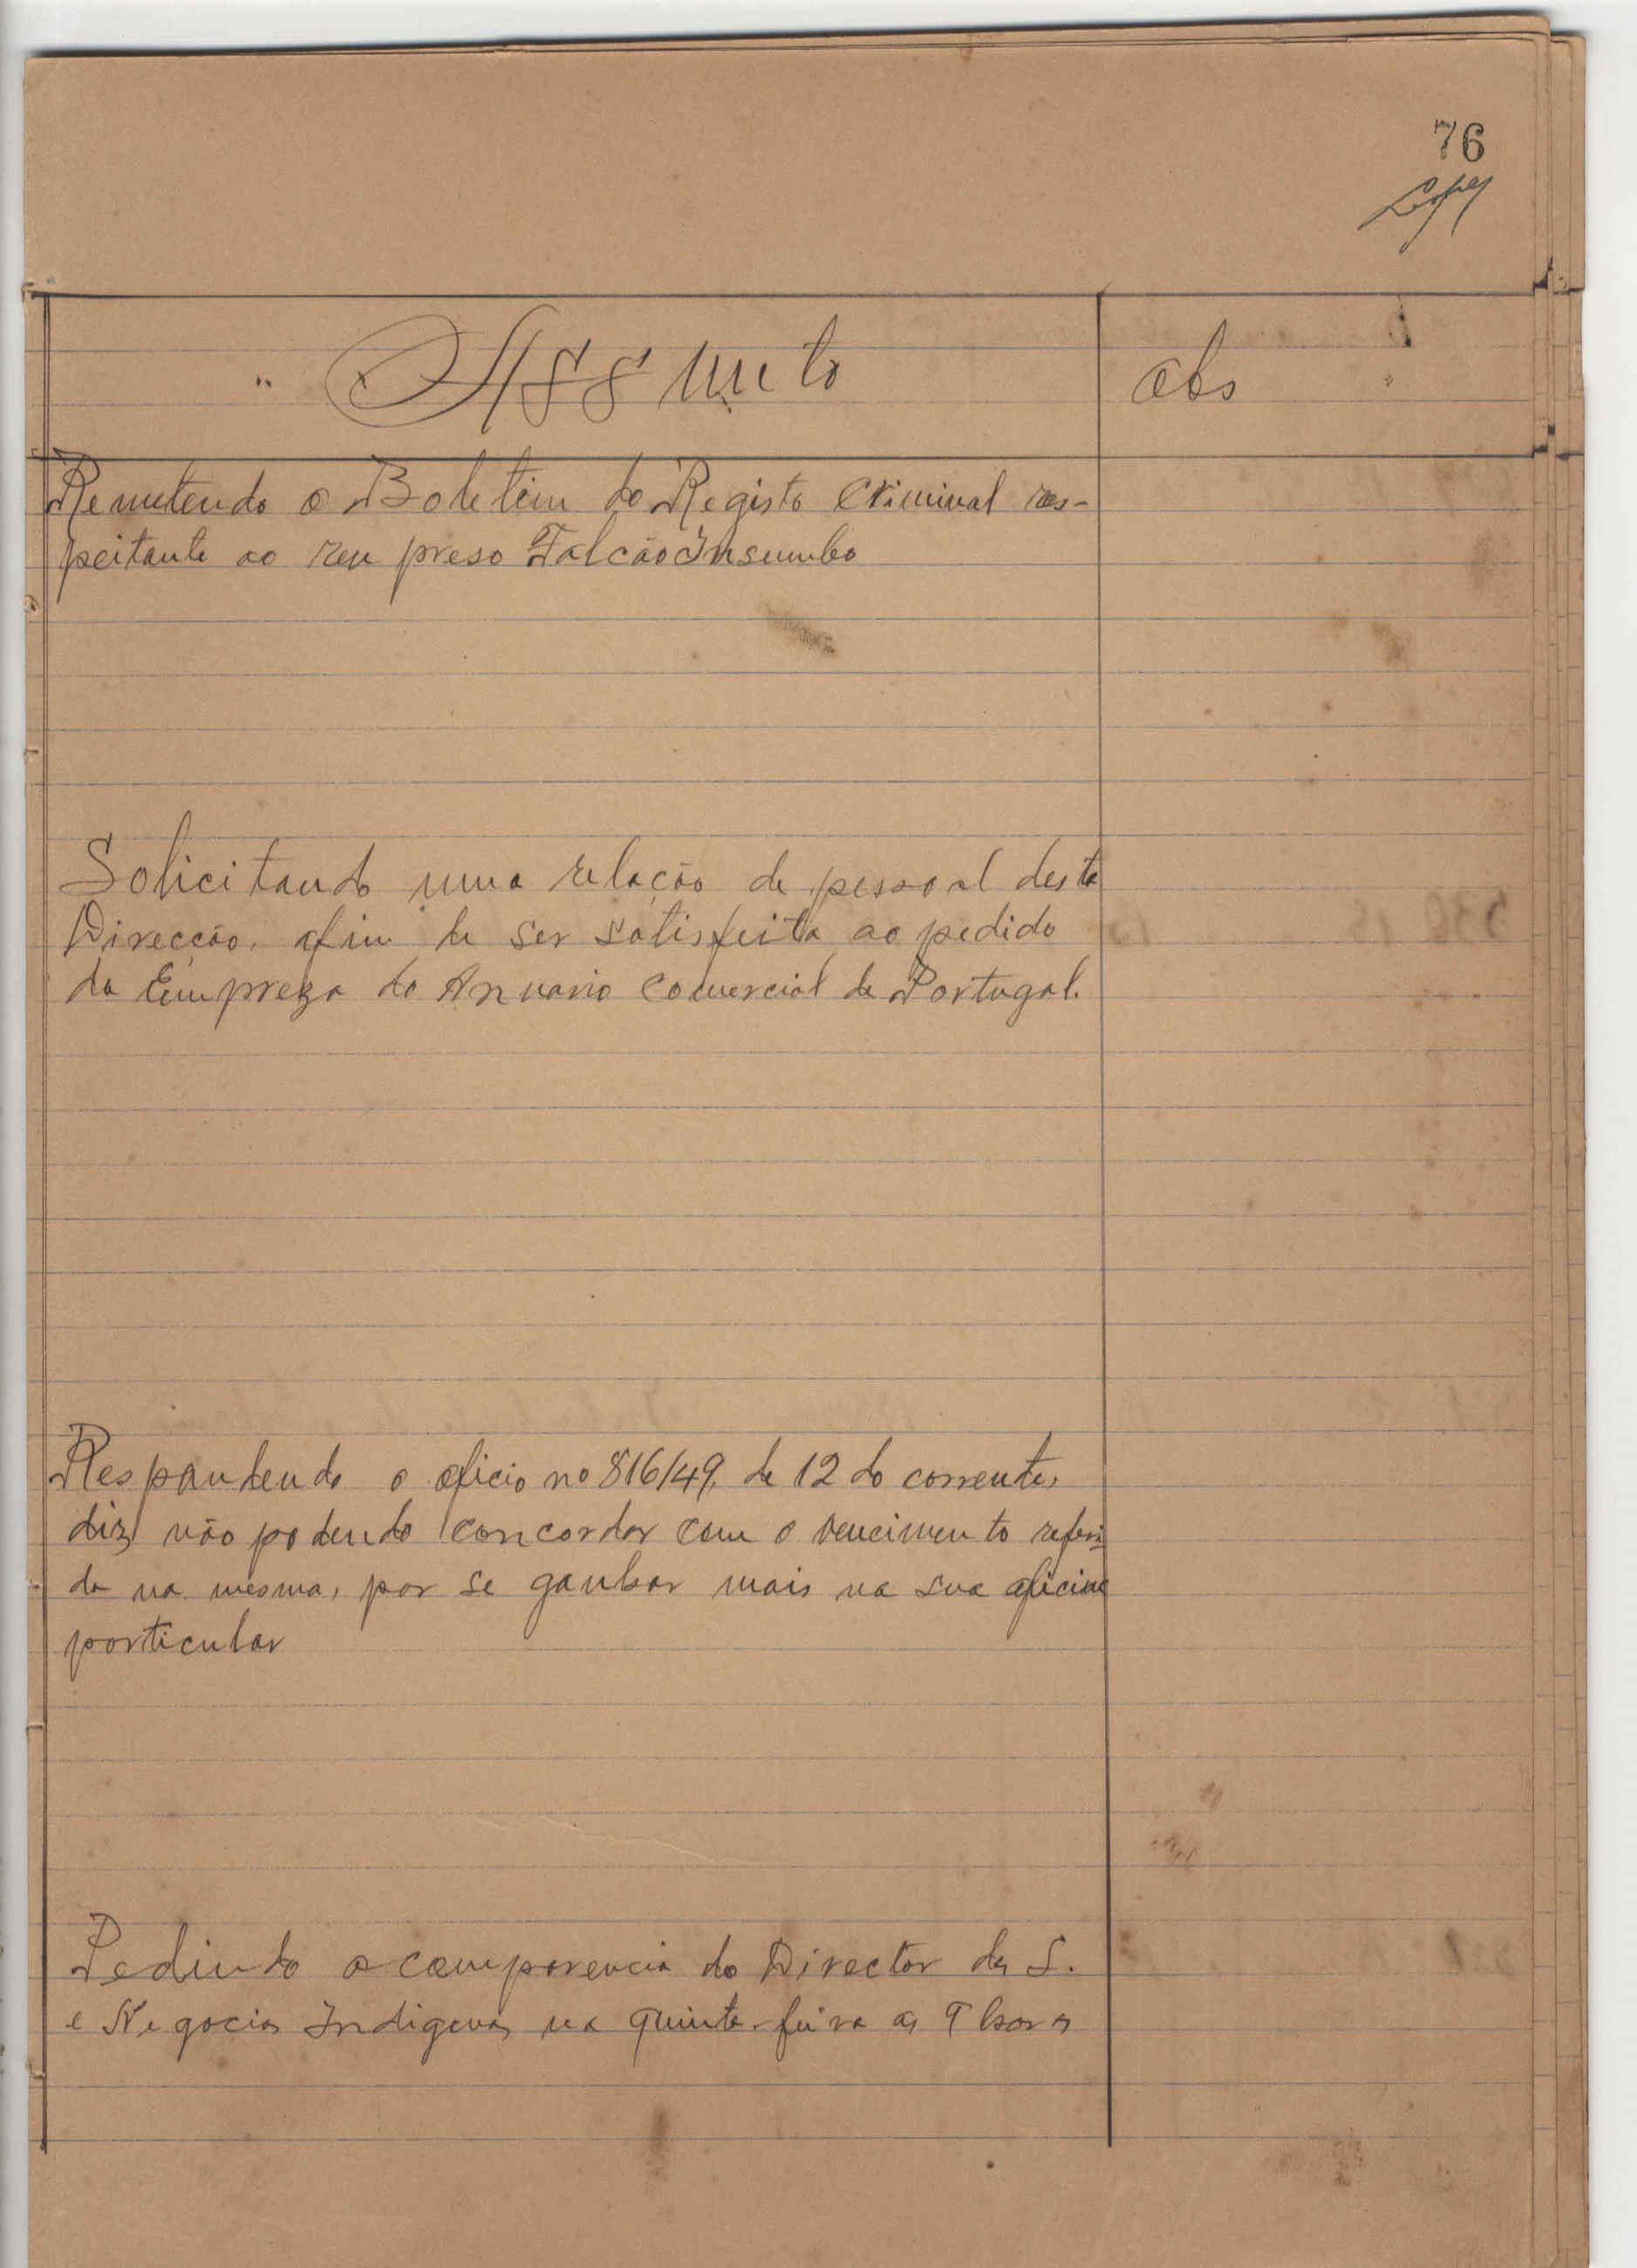 76
Lopes
Assunto
Obs
Remetendo o Boletim do Registo Criminal res-
peitante ao reu preso Falcão Insumbo
Solicitando uma relação de pessoal desta
Direcção, afim de ser satisfeita ao pedido
da Empreza do Anuario Comercial de Portugal.
Respondendo o oficio nº 816/49, de 12 do corrente,
diz não podendo concordar com o vencimento referi-
do na mesma, por se ganhar mais na sua oficina
particular
Pedindo a comparencia do Director dos S.
e Negocios Indigenas na quinta-feira as 9 horas